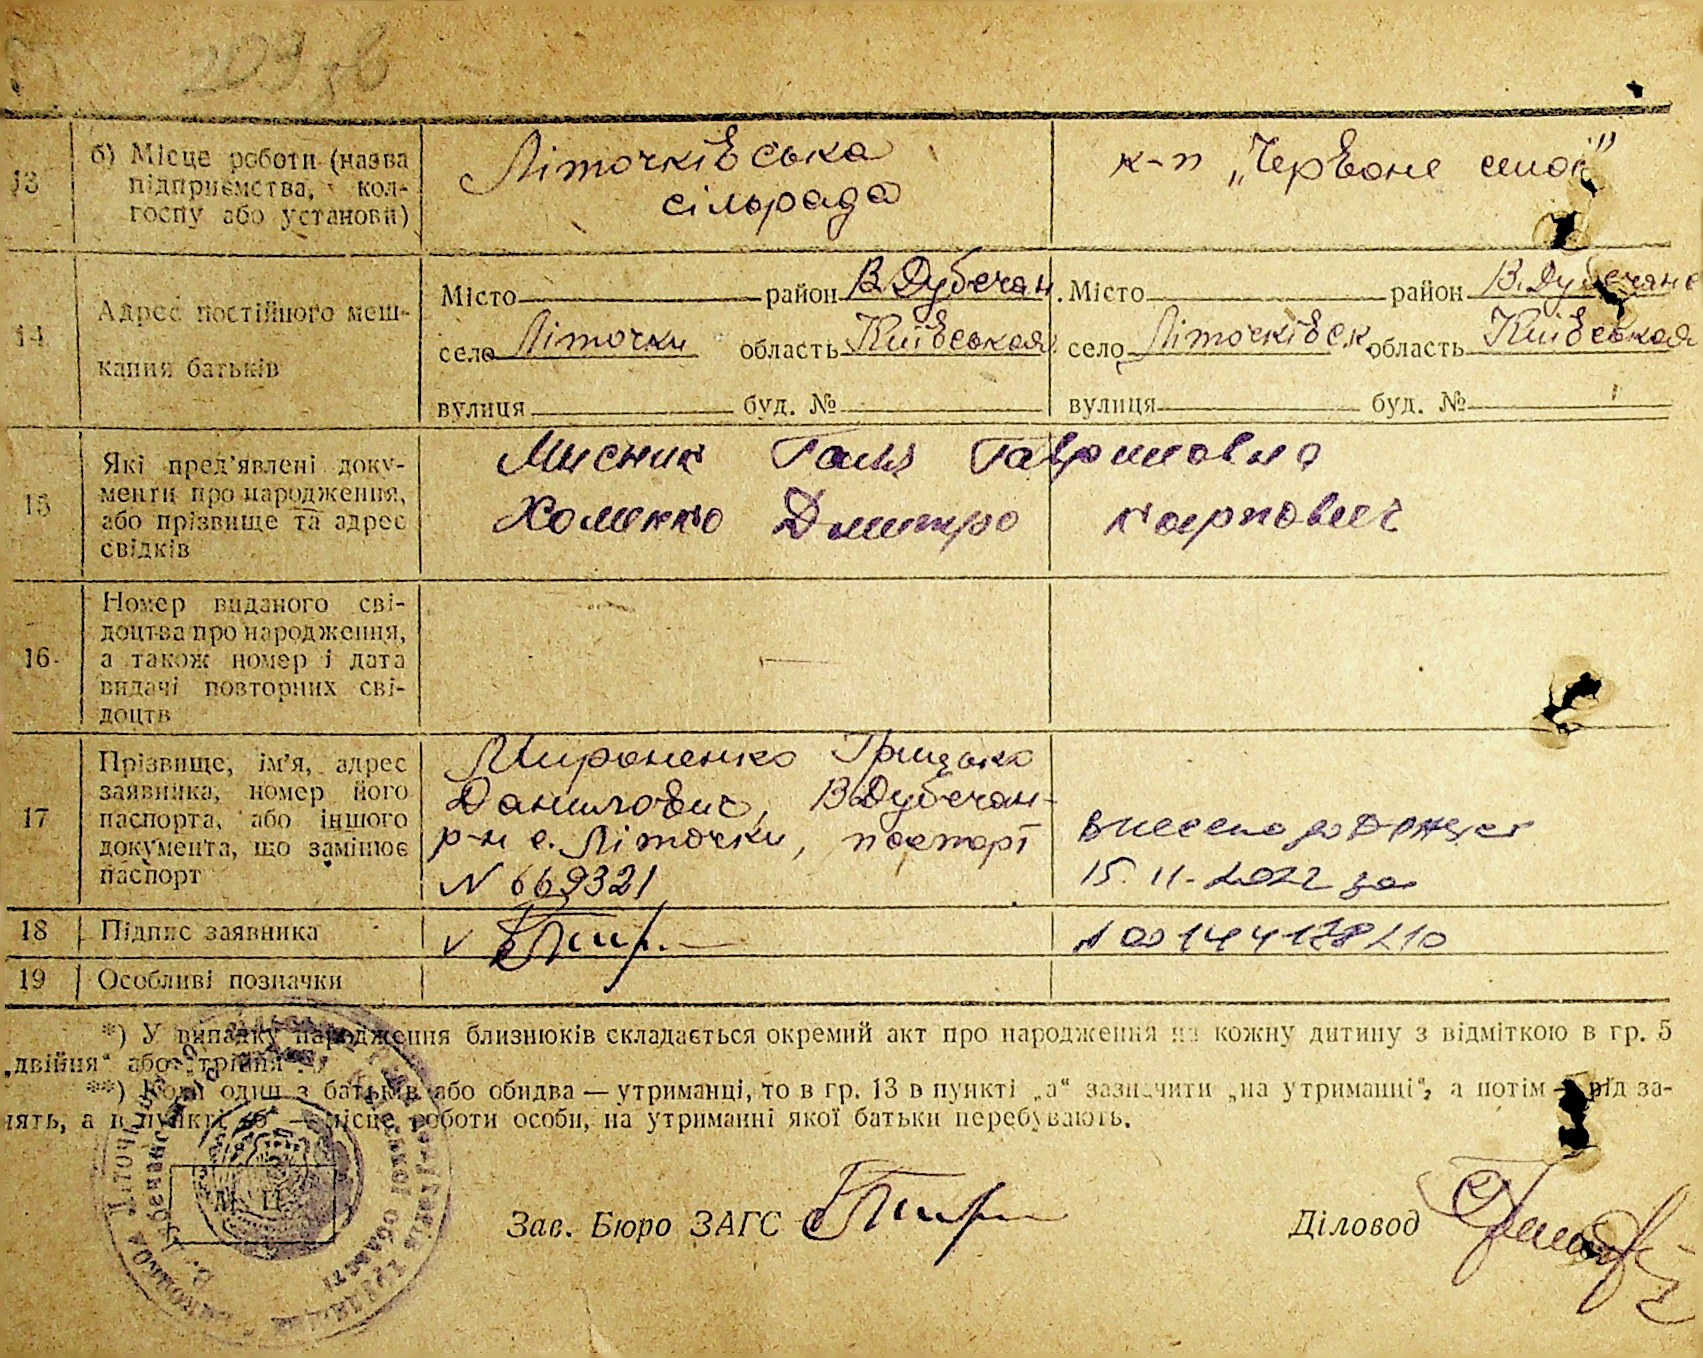 209 зв
13
б) Місце роботи (назва
підприємства, кол-
госпу або установи)
Літочківська
сільрада
к-п „Червоне село"
14
Адрес постійного меш-
кання батьків
Місто район В.Дубечан.
село Літочки область Київськая
вулиця буд. №
Місто район В.Дубечане
село Літочківськ область Київськая
вулиця буд. №
15
Які пред'явлені доку-
менти про народження,
або прізвище та адрес
свідків
Мисник Галя Гавриловна
Хоменко Дмитро Карпович
16
Номер виданого сві-
доцтва про народження,
а також номер і дата
видачі повторних сві-
доцтв
17
Прізвище, ім'я, адрес
заявника, номер його
паспорта, або іншого
документа, що замінює
паспорт
Мироненко Грицько
Данилович, В Дубечан-
р-н с. Літочки, паспорт
N 669321
Внесено до ДРАЦСГ
15.11.2022 за
N 00144178210
18
Підпис заявника
v
19
Особливі позначки
*) У випадку народження близнюків складається окремий акт про народження на кожну дитину з відміткою в гр. 5
„двійня" або „трійня".
**) Коли один з батьків або обидва — утриманці, то в гр. 13 в пункті „а" зазначити „на утриманні", а потім рід за-
нять, а в пункті „б" — місце роботи особи, на утриманні якої батьки перебувають.
М. П.
Зав. Бюро ЗАГС
Діловод